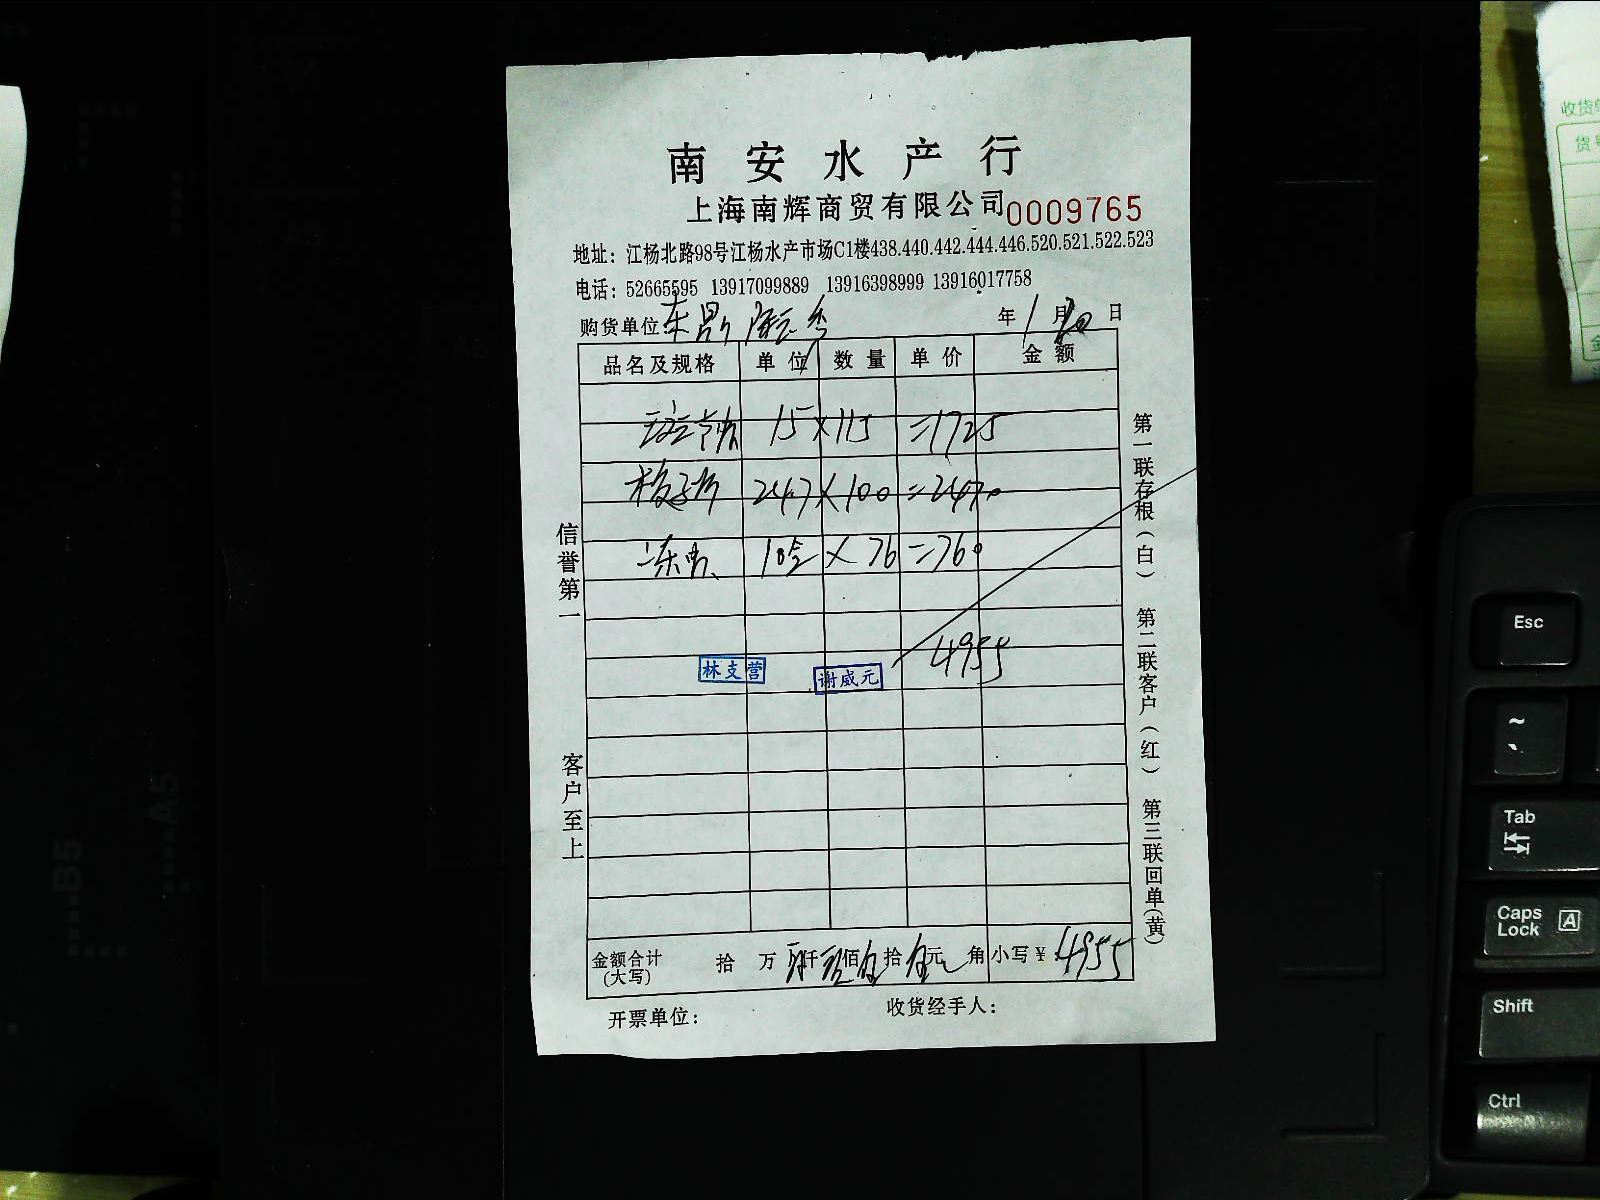 南安水产行
上海南辉商贸有限公司 0009765
地址：江杨北路98号江杨水产市场C1楼438.440.442.444.446.520.521.522.523
电话：52665595 13917099889 13916398999 13916017758
购货单位 年 1 月 20 日
品名及规格 单位 数量 单价 金额
15 × 115 =1725
24.7 × 100 =2470
10盒 × 76 =760
4955
林支营 谢威元
金额合计(大写) 拾 万 仟 佰 拾 元 角 小写￥：4955
开票单位： 收货经手人：
信誉第一
客户至上
第一联存根（白） 第二联客户（红） 第三联回单(黄)
收货
货号
金
B5
A5
Esc
~
`
Tab
Caps Lock A
Shift
Ctrl